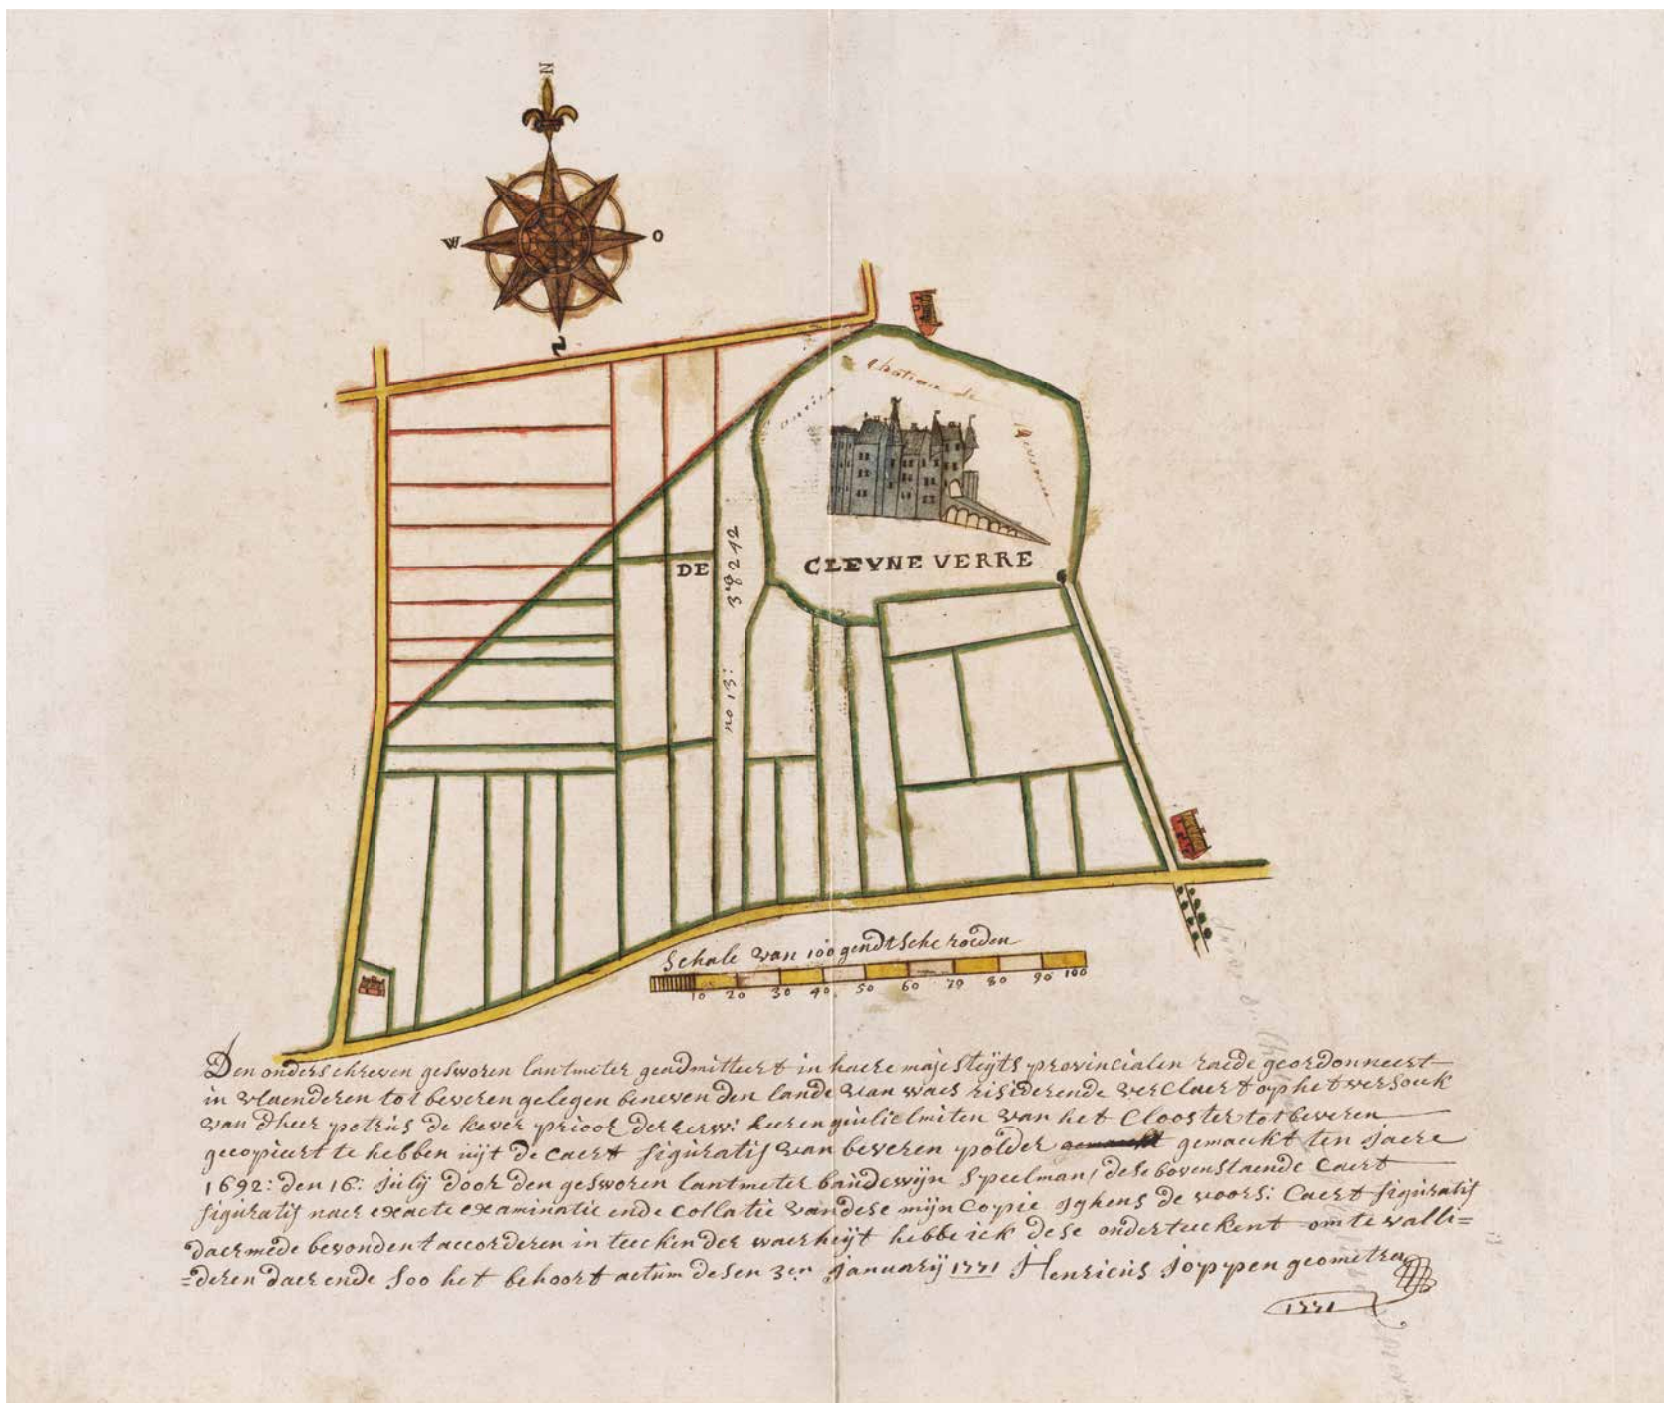 N
W O
Z
Chateau de
DE CLEYNE VERRE
no 13: 3'g 242
Schale van 100 gendtsche roeden
10 20 30 40 50 60 70 80 90 100
Den onderschreven gesworen lantmeter geadmitteert in haere majesteÿts provincialen raede geordonneert
in vlaenderen tot beveren gelegen beneven den lande van waes risiderende verclaert op het versouk
van dheer potrus de kever prioor der eerw: heeren guilielmiten van het Clooster tot beveren
gecopieert te hebben uÿt de caert figuratif van beveren polder gemaeckt ten jaere
1692: den 16: julÿ door den gesworen lantmeter baudewÿn Speelman, dese bovenstaende Caert
figuratif naer exacte examinatie ende Collatie van dese mÿn Copie jghens de voors: Caert figuratif
daermede bevonden t accorderen in teecken der waerheÿt hebbe ick dese onderteeckent om te valli=
=deren daer ende soo het behoort actum desen 3en januarÿ 1771 Henricus Joppen geometra
1771